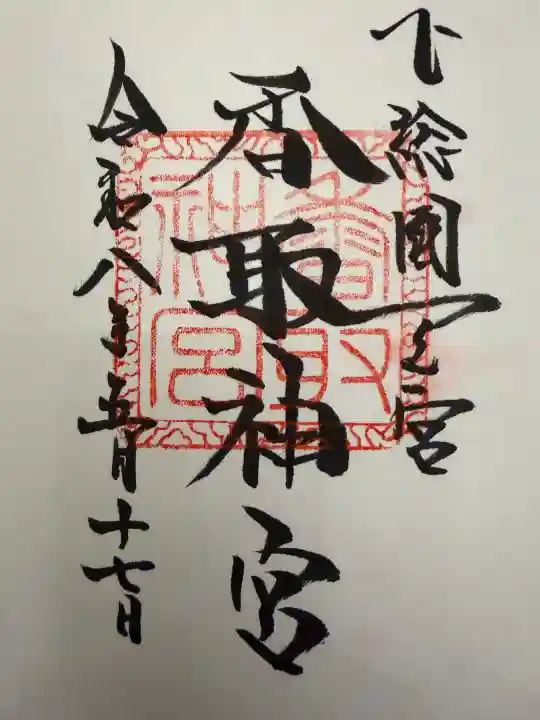 下総國一之宮
香取神宮
令和八年五月十七日
香取神宮